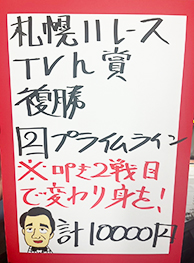 札幌11レース
TVh賞
複勝
②プライムライン
※叩き2戦目
で変わり身を!
計10000円